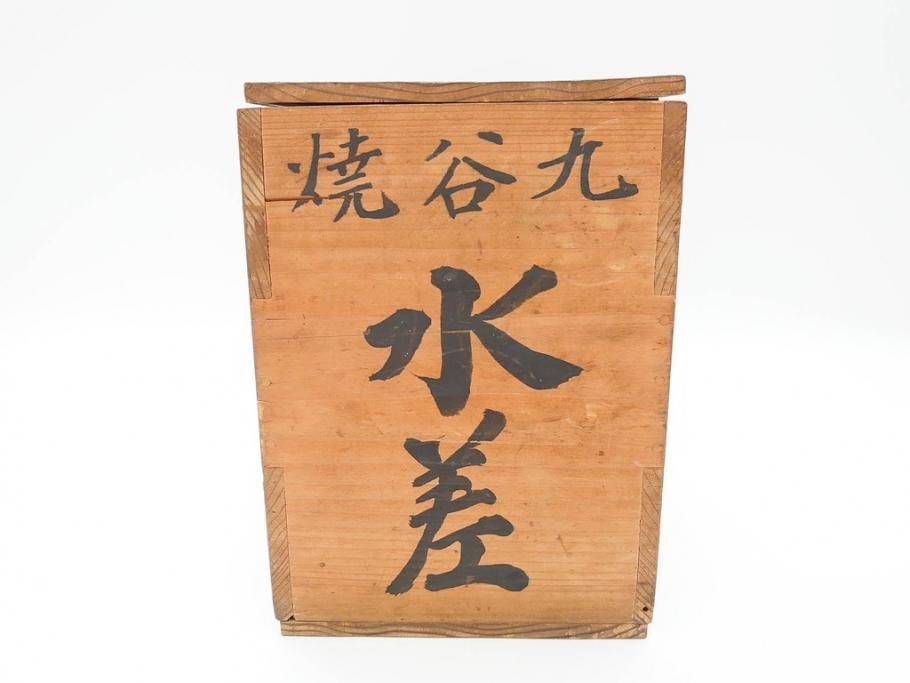 九谷焼
水差